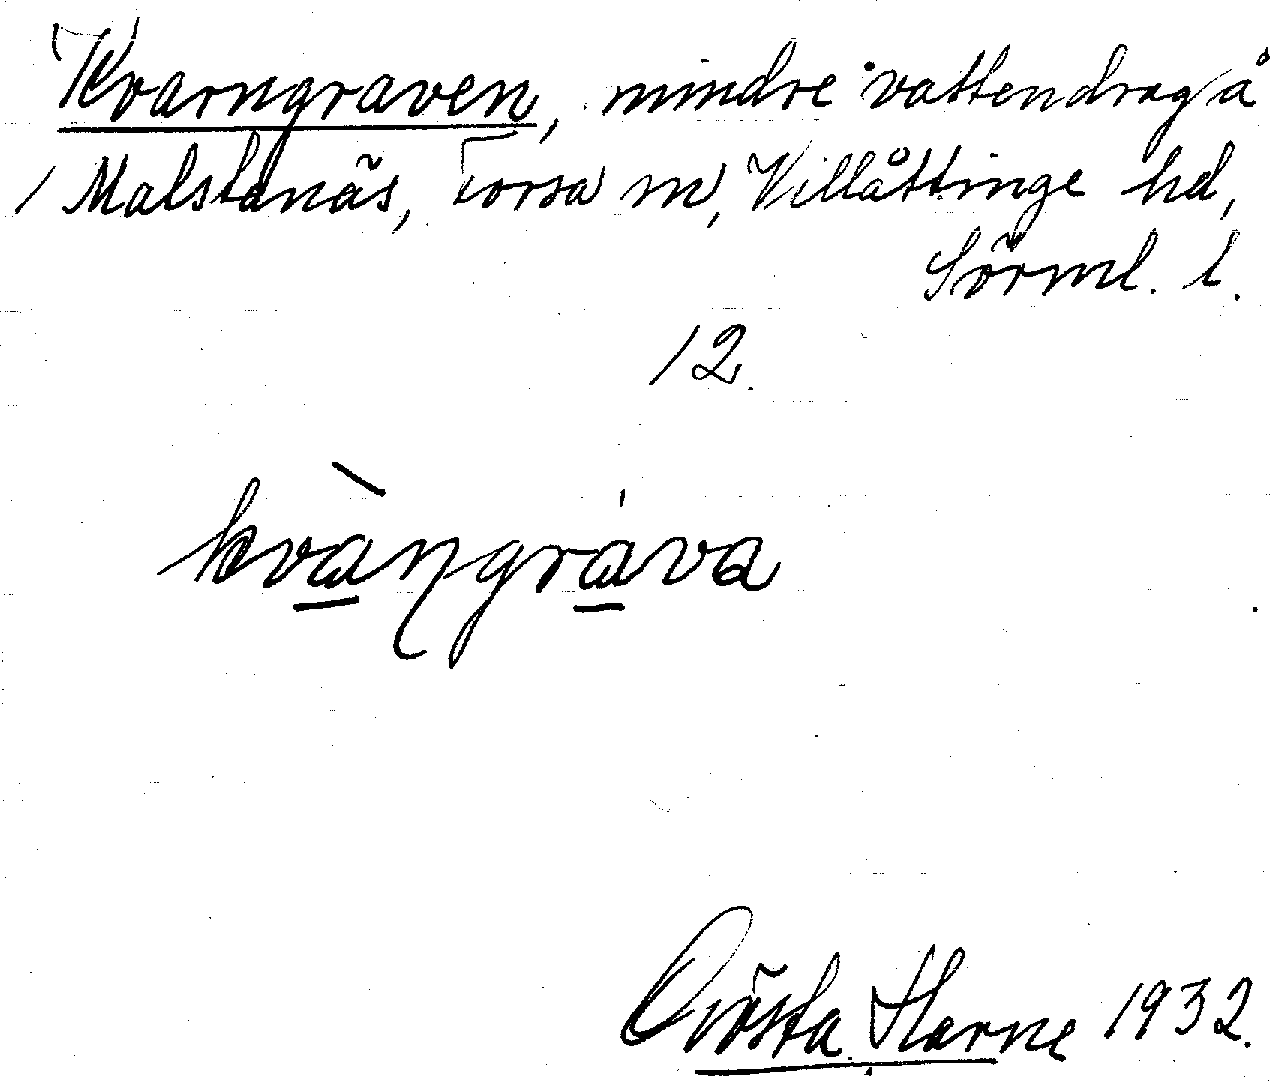 Kvarngraven, mindre vattendrag å
/ Malstanäs, Torsa sn, Villåttinge hd,
Sörml. l.
12.
kvàŋgráva
Gösta Harne 1932.